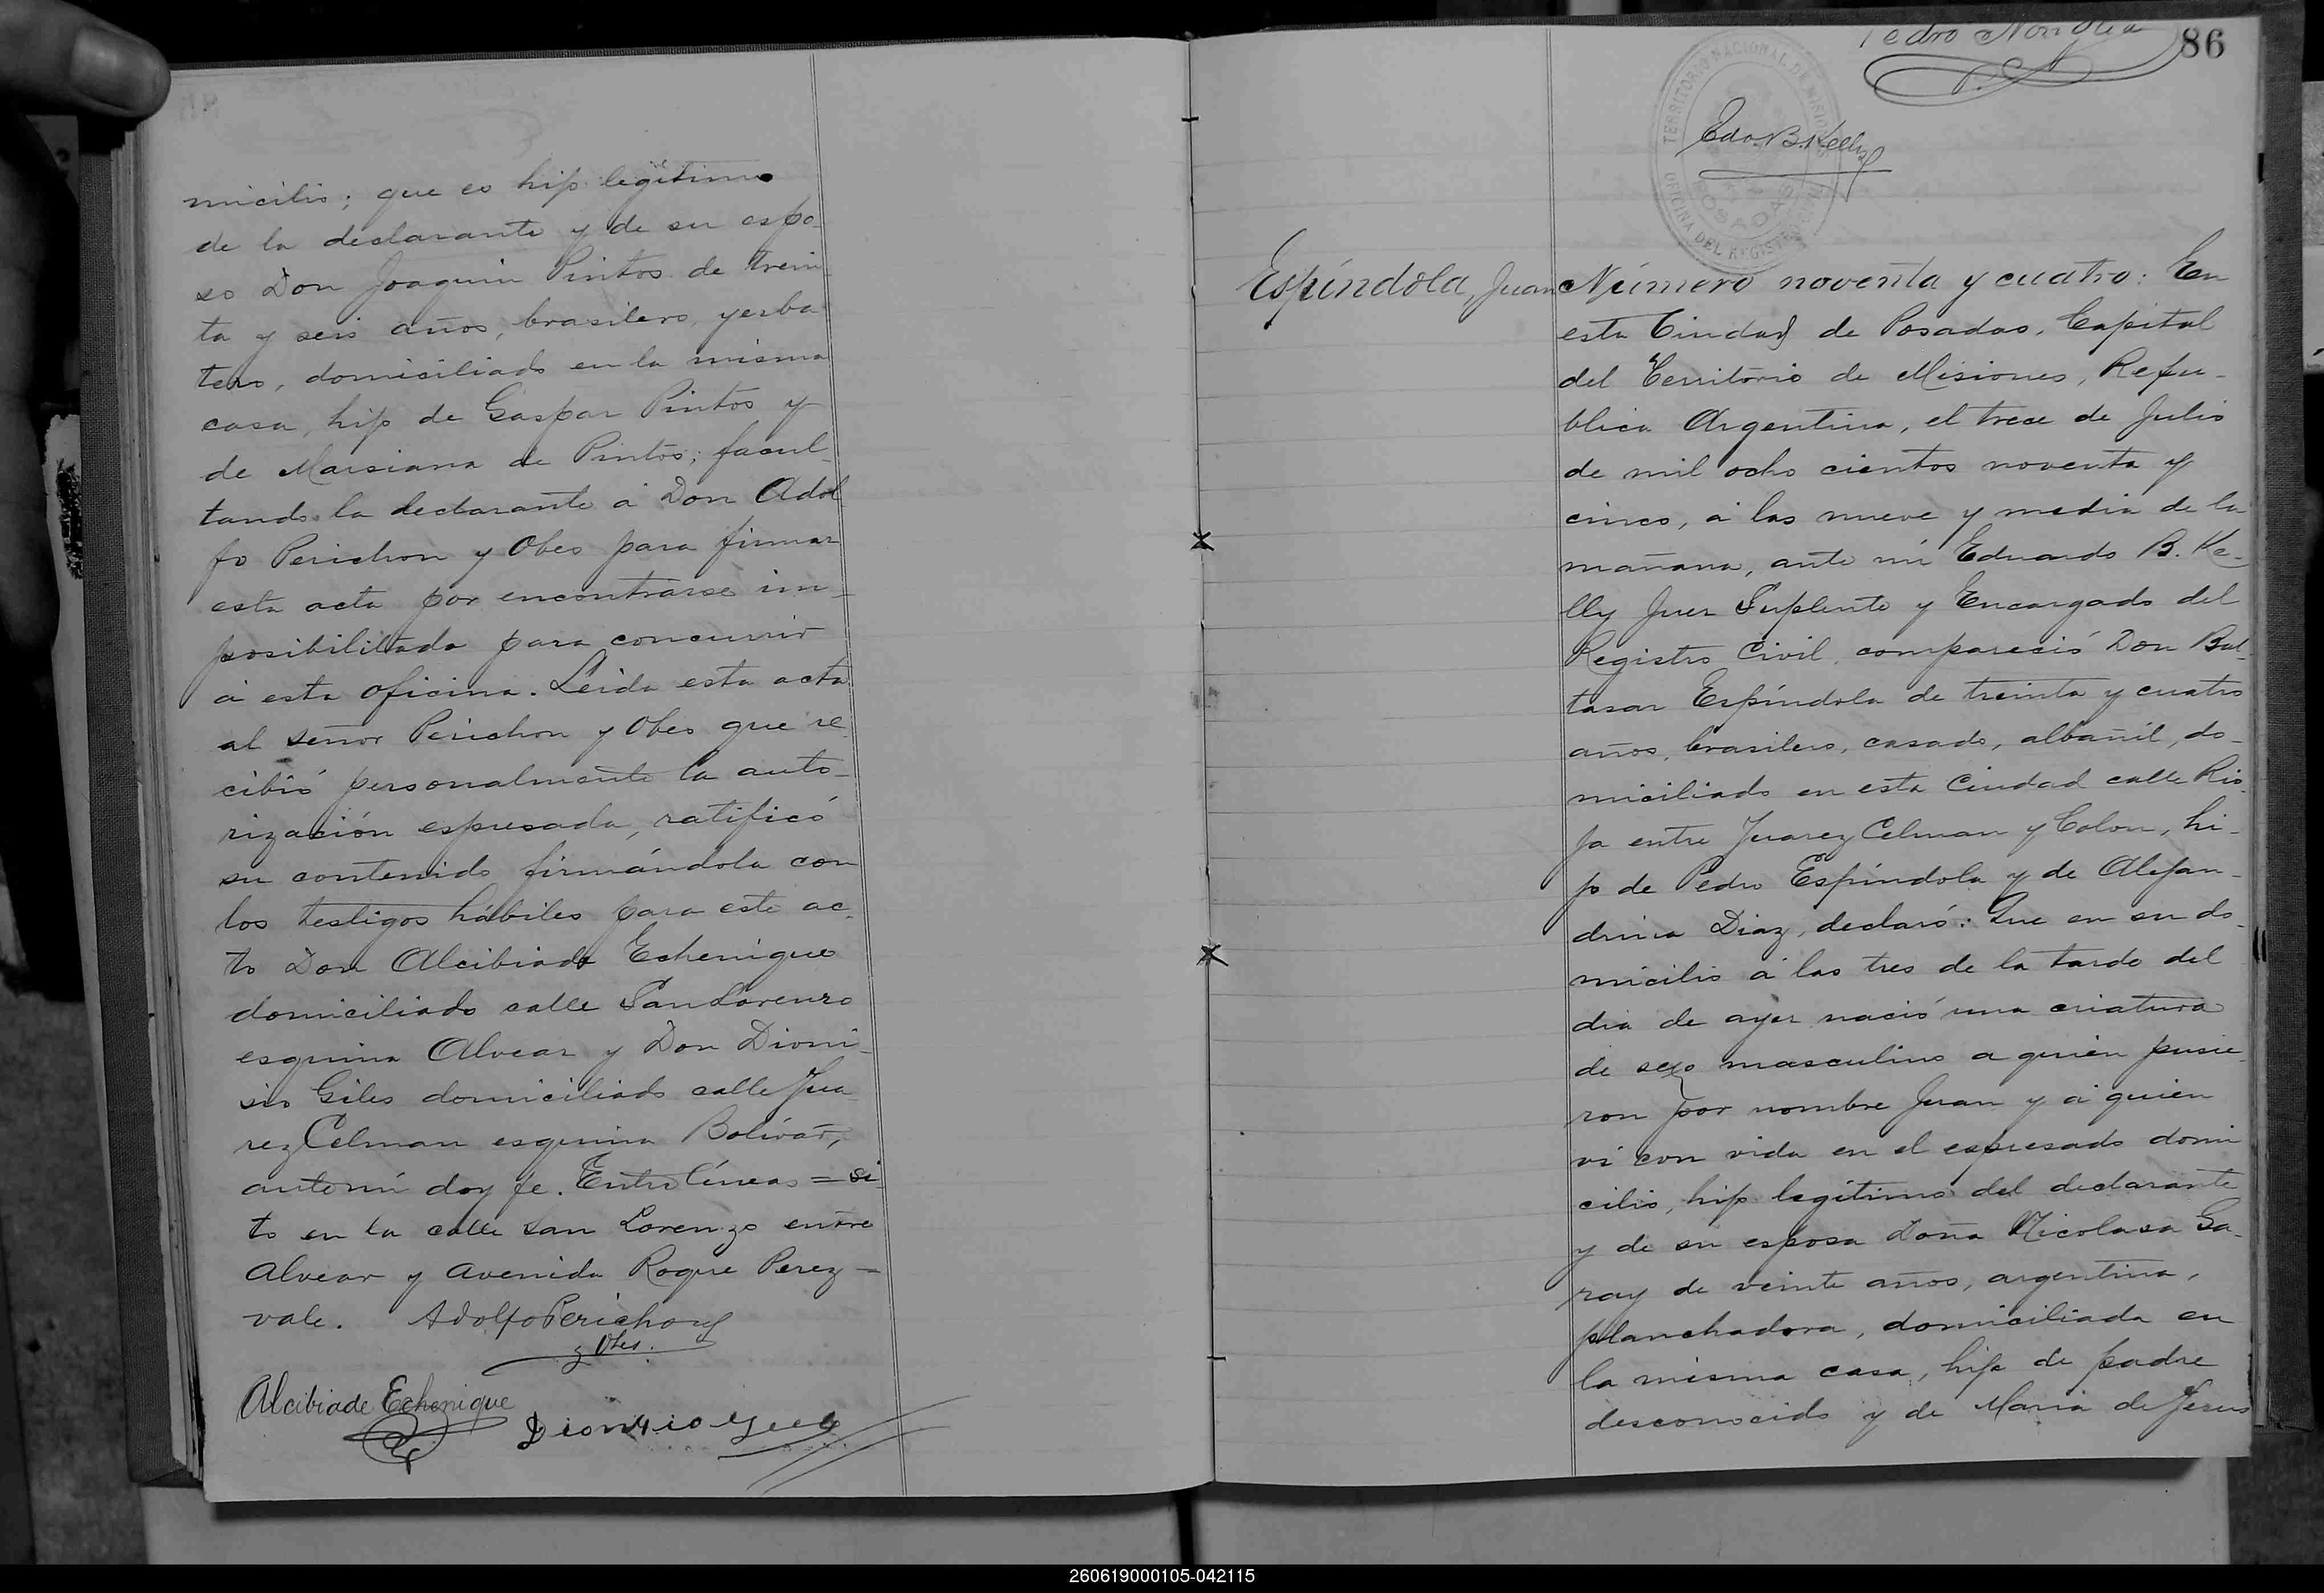 micilio; que es hijo legítimo
de la declarante y de su espo-
so Don Joaquin Pintos de trein-
ta y seis años, brasilero, yerba-
tero, domiciliado en la misma
casa, hijo de Gaspar Pintos y
de Marsiana de Pintos; facul-
tando la declarante á Don Adol
fo Perichon y Obes para firmar
esta acta por encontrarse im-
posibilitada para concurrir
á esta oficina. Leida esta acta
al señor Perichon y Obes que re-
cibió personalmente la auto-
rización espresada, ratificó
su contenido firmándola con
los testigos hábiles para este ac-
to Don Alcibiade Echenique
domiciliado calle San Lorenzo
esquina Alvear y Don Dioni-
sio Giles domiciliado calle Jua-
rez Celman esquina Bolívar,
ante mí doy fe. Entre líneas = si-
to en la calle San Lorenzo entre
Alvear y Avenida Roque Perez =
vale. Adolfo Perichon
y Obes.
Alcibiade Echenique
Dionisio
86
Pedro
TERRITORIO NACIONAL DE MISIONES
OFICINA DEL REGISTRO CIVIL
POSADAS
Edo. B. Kelly
Espíndola, Juan
Número noventa y cuatro: En
esta Ciudad de Posadas, Capital
del Territorio de Misiones, Repu-
blica Argentina, el trece de Julio
de mil ocho cientos noventa y
cinco, á las nueve y media de la
mañana, ante mí Eduardo B. Ke-
lly Juez Suplente y Encargado del
Registro Civil, compareció Don Bal-
tasar Espíndola de treinta y cuatro
años, brasilero, casado, albañil, do-
miciliado en esta Ciudad calle Rio-
ja entre Juarez Celman y Colon, hi-
jo de Pedro Espíndola y de Alejan-
drina Diaz, declaró: Que en su do-
micilio á las tres de la tarde del
dia de ayer nació una criatura
de sexo masculino a quien pusie-
ron por nombre Juan y á quien
ví con vida en el espresado domi
cilio, hijo legítimo del declarante
y de su esposa Doña Nicolasa Ga-
ray de veinte años, argentina,
planchadora, domiciliada en
la misma casa, hija de padre
desconocido y de Maria de Jesus
260619000105-042115